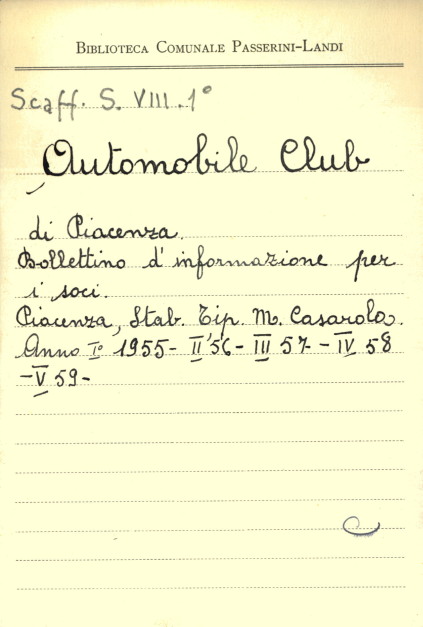 BIBLIOTECA COMUNALE PASSERINI-LANDI
Scaff. S. VIII. 1°
Automobile Club
di Piacenza.
Bollettino d'informazione per
i soci.
Piacenza, Stab. Tip. M. Casarola.
Anno I° 1955- II '56- III 57- IV 58
-V 59-